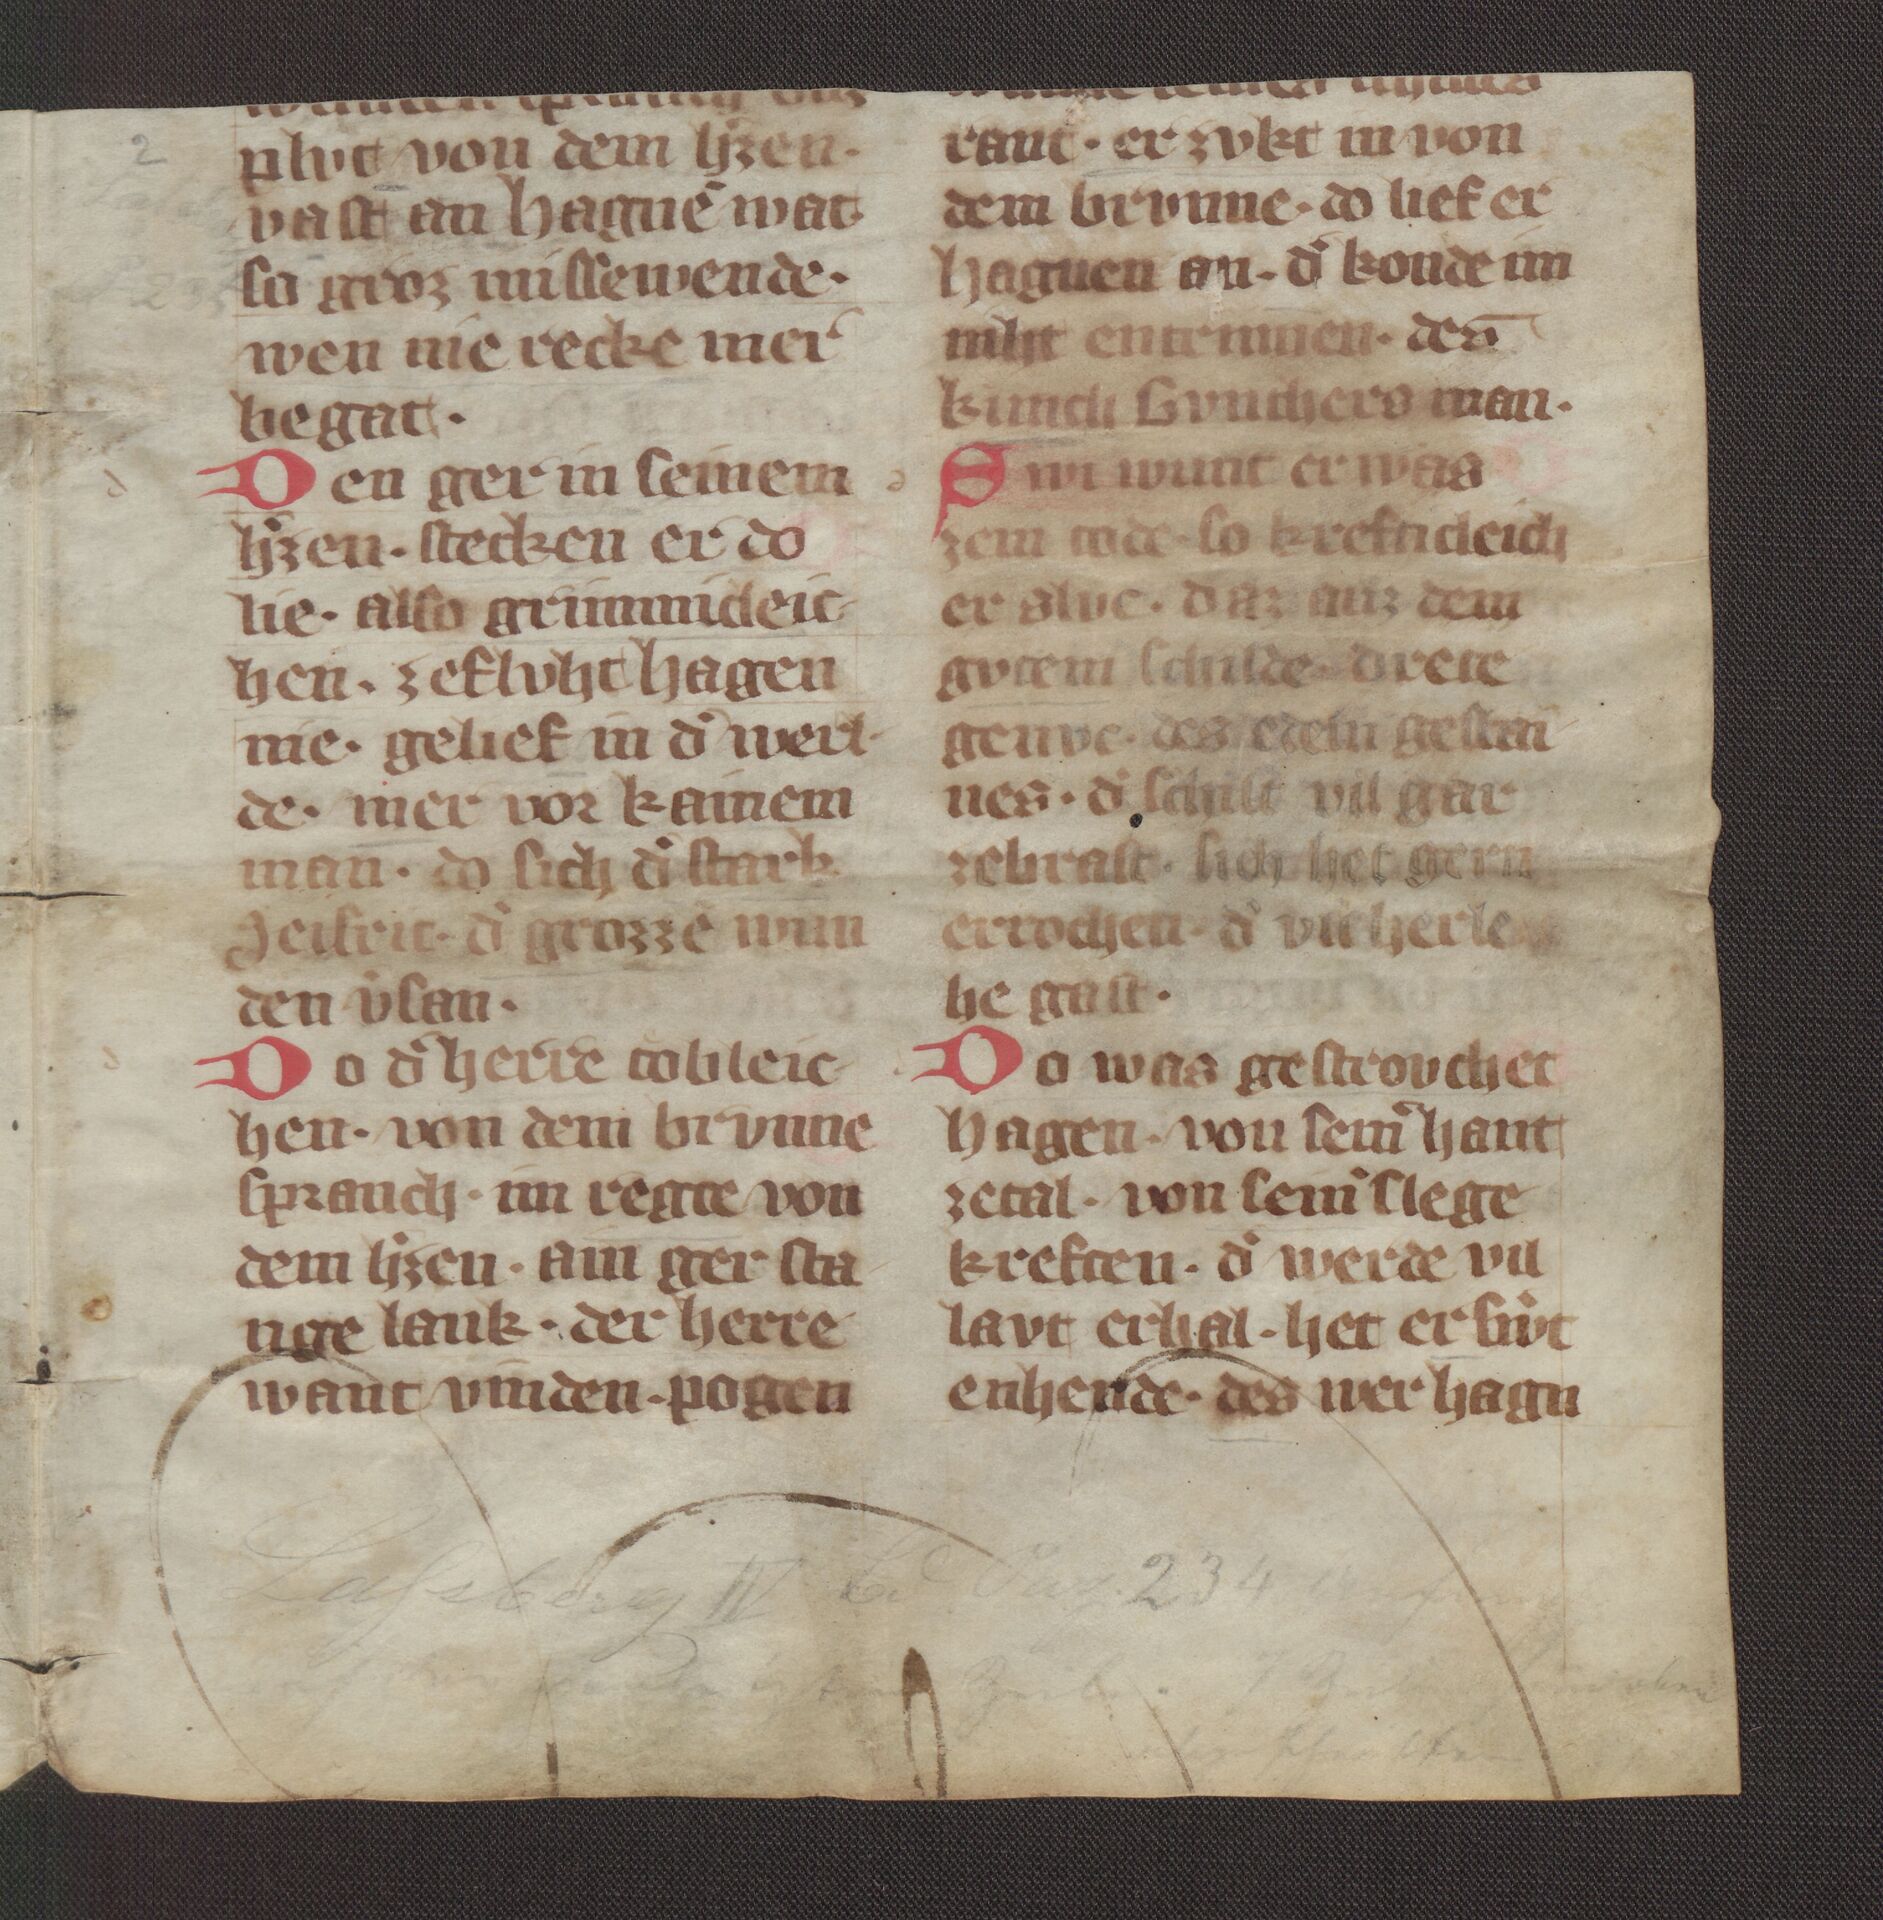 2
wunden spranch daz
plvt von dem hꝰzen·
vast an hagnē wat
so groz missewende·
wen nie recke mer
begat·
Den ger in seinem
hꝰzen· stecken er do
lie· also grimmicleic
hen· zeflvht hagen
nie· gelief in dꝰ werl
de· mer vor kainem
man· do sich dꝰ stark
Seifrit· dꝰ grozzē wun
den vꝰsan·
Do dꝰ herre tobleic
hen· von dem brvnne
spranch· im regte von
dem hꝰzen· ain ger sta
nge lank· der herre
want vinden· pogen
rant· er zvkt in von
dem brvnne· do lief er
hagnen an· dꝰ konde im
niht entrinnen· des
kunich Gvnthers man·
Swi wunt er was
zem tode· so krefticleich
er slvc· daz auz dem
gvtem schilde· drete
genvc· des edeln gestai
nes· dꝰ schilt vil gar
zebrast· sich het gern
errochen· dꝰ vil herle
he gast·
Do was gestrovchet
hagen· von seinꝰ hant
zetal· von seinꝰ slege
kreften· dꝰ werde vil
lavt erhal· het er swꝰt
enhende· des wer hagn
Lassberg IV Bd Pag. 234